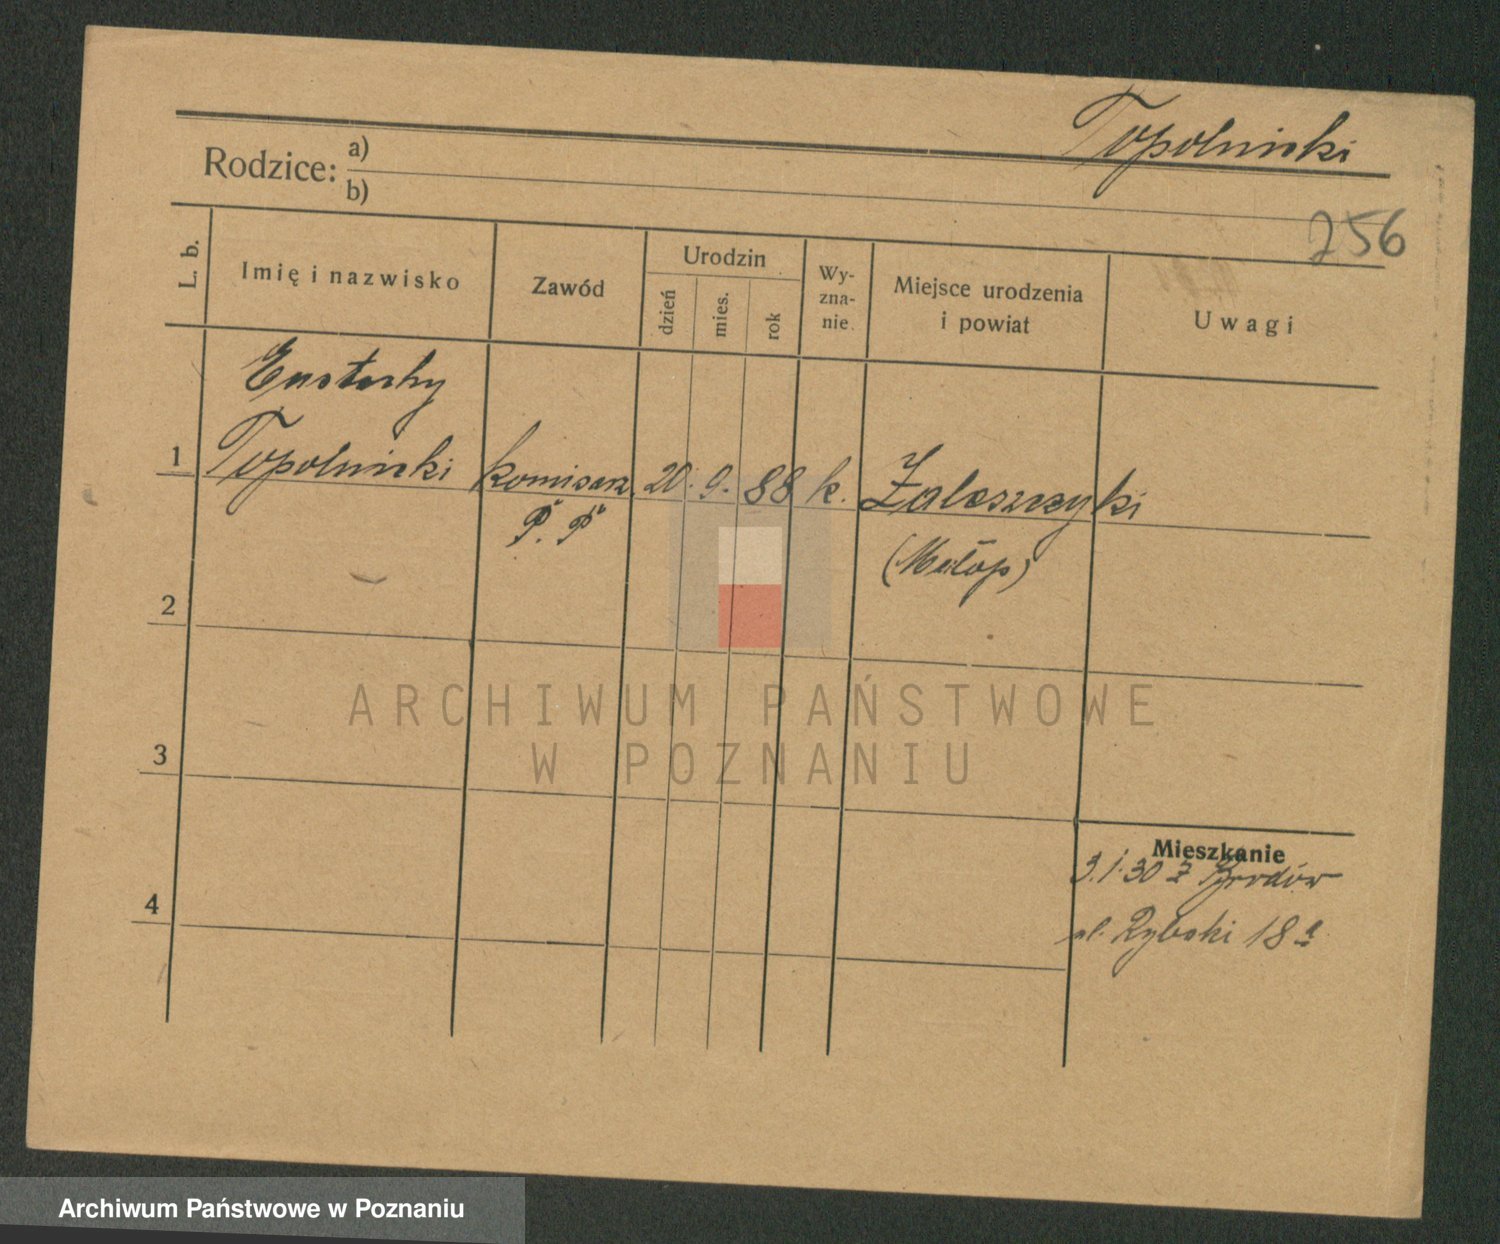 Topolnicki
Rodzice: a)
b)
256
L. b.
Imię i nazwisko
Zawód
Urodzin
dzień
mies.
rok
Wy-
zna-
nie
Miejsce urodzenia
i powiat
Uwagi
Eustachy
1 Topolnicki komisarz 20. 9. 88 k. Zaleszczyki
P. P.
(Małop)
2
ARCHIWUM PAŃSTWOWE
W POZNANIU
3
Mieszkanie
3.1.30 z Brodów
4
ul. Rybaki 18a
Archiwum Państwowe w Poznaniu